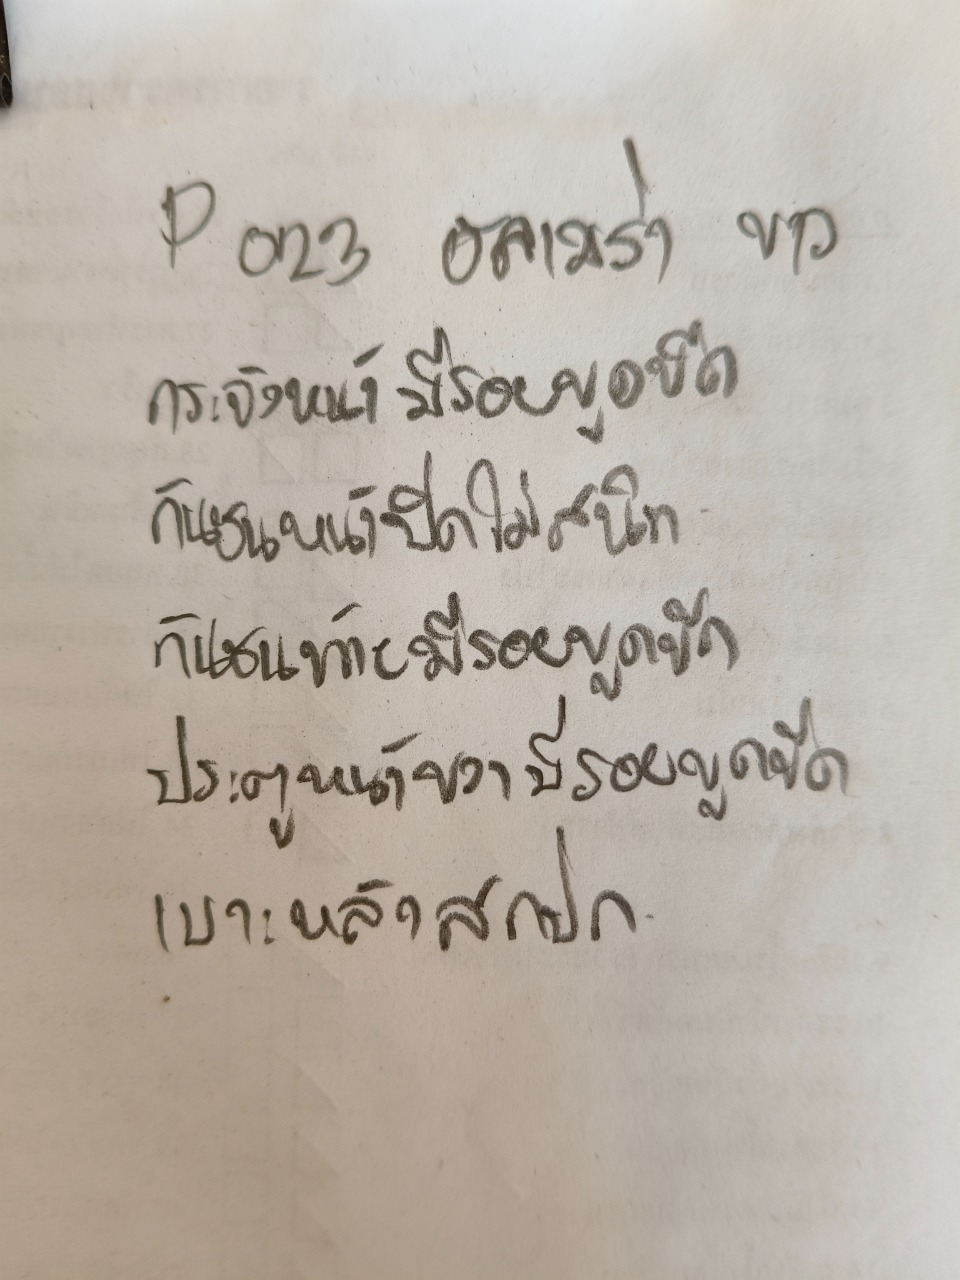 P 023 อลเมร่า ขาว
กระจังหน้า มีรอยขูดขีด
กันชนหน้าปิดไม่สนิท
กันชนท้ายมีรอยขูดขีด
ประตูหน้าขวา มีรอยขูดขีด
เบาะหลังสกปก